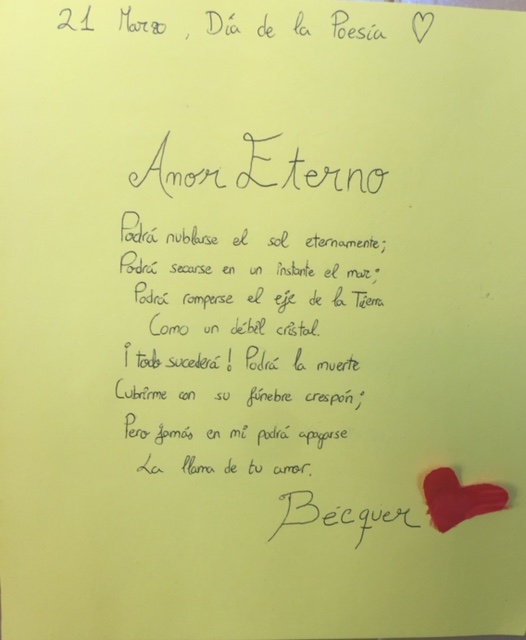 21 Marzo, Día de la Poesía ♡
Amor Eterno
Podrá nublarse el sol eternamente;
Podrá secarse en un instante el mar;
Podrá romperse el eje de la Tierra
Como un débil cristal.
¡todo sucederá! Podrá la muerte
Cubrirme con su fúnebre crespón;
Pero jamás en mi podrá apagarse
La llama de tu amor.
Bécquer